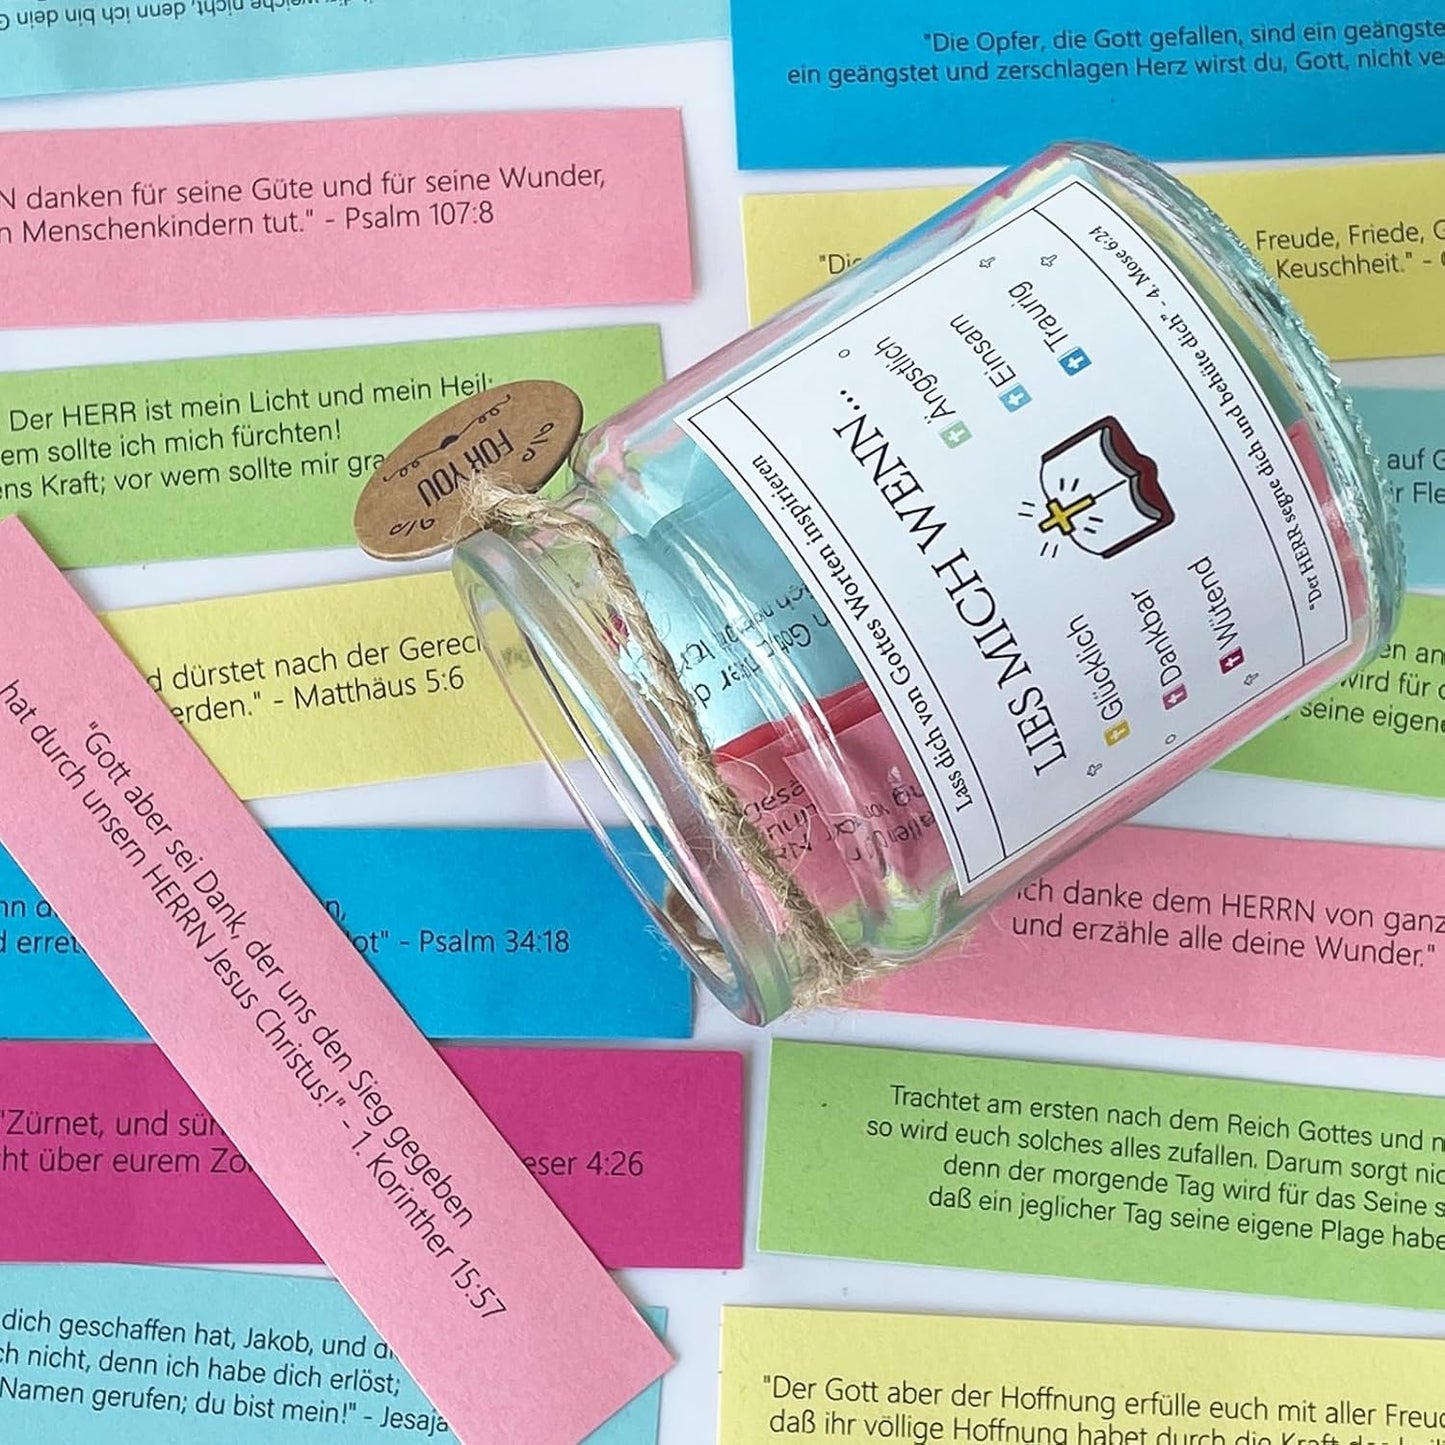 weiche nicht, denn ich bin dein G
"Die Opfer, die Gott gefallen, sind ein geängste
ein geängstet und zerschlagen Herz wirst du, Gott, nicht ve
N danken für seine Güte und für seine Wunder,
n Menschenkindern tut." - Psalm 107:8
"Die
Freude, Friede, G
Keuschheit." -
Der HERR ist mein Licht und mein Heil;
em sollte ich mich fürchten!
ns Kraft; vor wem sollte mir gra
FOR YOU
Lass dich von Gottes Worten inspirieren
LIES MICH WENN...
Ängstlich
Einsam
Traurig
Glücklich
Dankbar
Wütend
"Der HERR segne dich und behüte dich" - 4. Mose 6:24
auf G
r Fle
d dürstet nach der Gerec
erden." - Matthäus 5:6
en an
wird für d
seine eigen
"Gott aber sei Dank, der uns den Sieg gegeben
hat durch unsern HERRN Jesus Christus!" - 1. Korinther 15:57
d erret
ot" - Psalm 34:18
ich danke dem HERRN von ganz
und erzähle alle deine Wunder."
"Zürnet, und sün
ht über eurem Zo
eser 4:26
Trachtet am ersten nach dem Reich Gottes und n
so wird euch solches alles zufallen. Darum sorgt nic
denn der morgende Tag wird für das Seine s
daß ein jeglicher Tag seine eigene Plage habe
dich geschaffen hat, Jakob, und d
ch nicht, denn ich habe dich erlöst;
Namen gerufen; du bist mein!" - Jesaja
"Der Gott aber der Hoffnung erfülle euch mit aller Freud
daß ihr völlige Hoffnung habet durch die Kraft